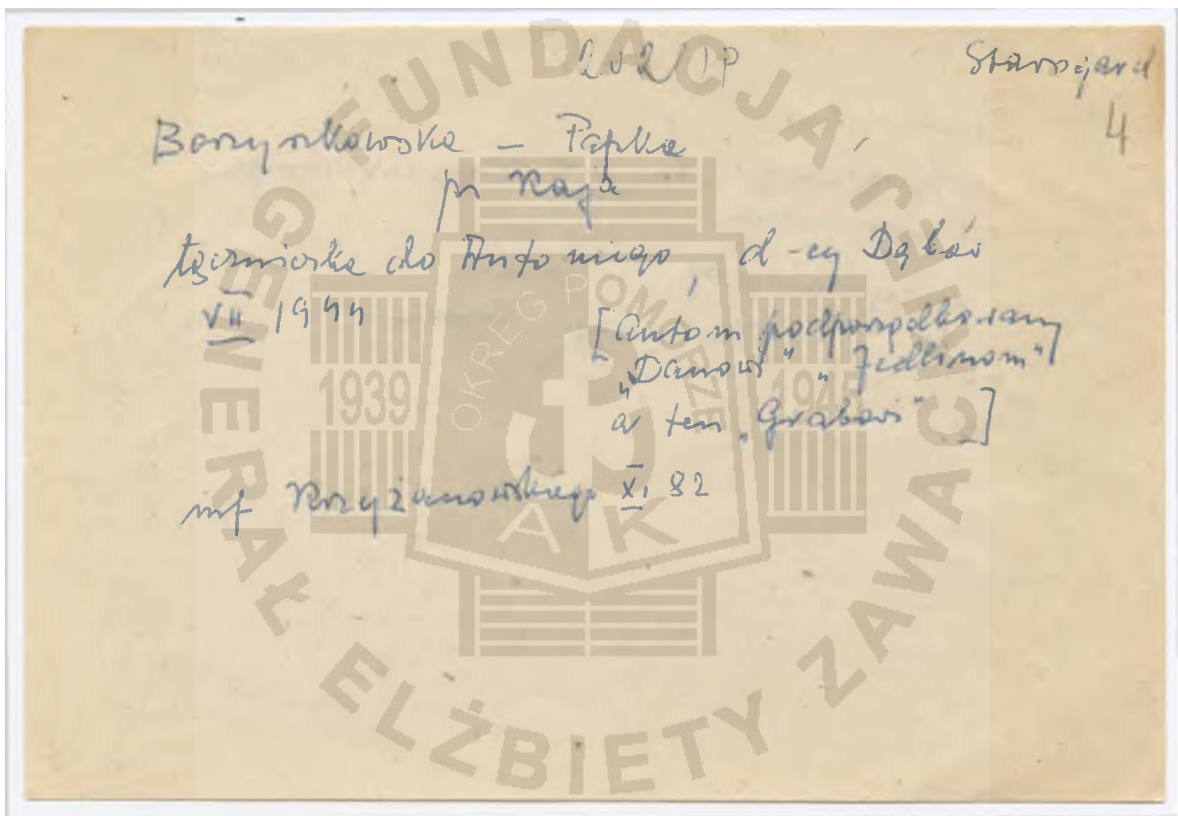 Starogard
4
Borzyszkowska – Pepka
ps Kaja
łączniczka do Antoniego, d-cy Dębów
VII 1944
[Antoni podporządkowany
„Danowi" „Jedlinom"
a ten „Grabowi"]
inf Krzyżanowskiego XI 82
FUNDACJA GENERAŁ ELŻBIETY ZAWACKIEJ
OKRĘG POMORZE
1939 1945
AK